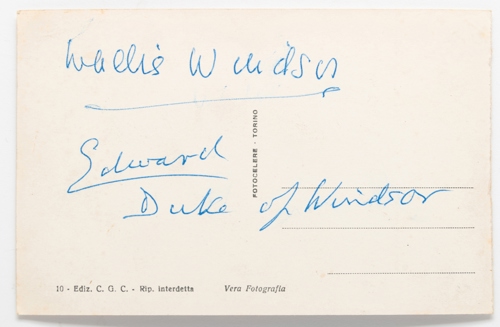 Wallis Windsor
Edward
Duke of Windsor
FOTOCELERE - TORINO
10 - Ediz. C. G. C. - Rip. interdetta
Vera Fotografia